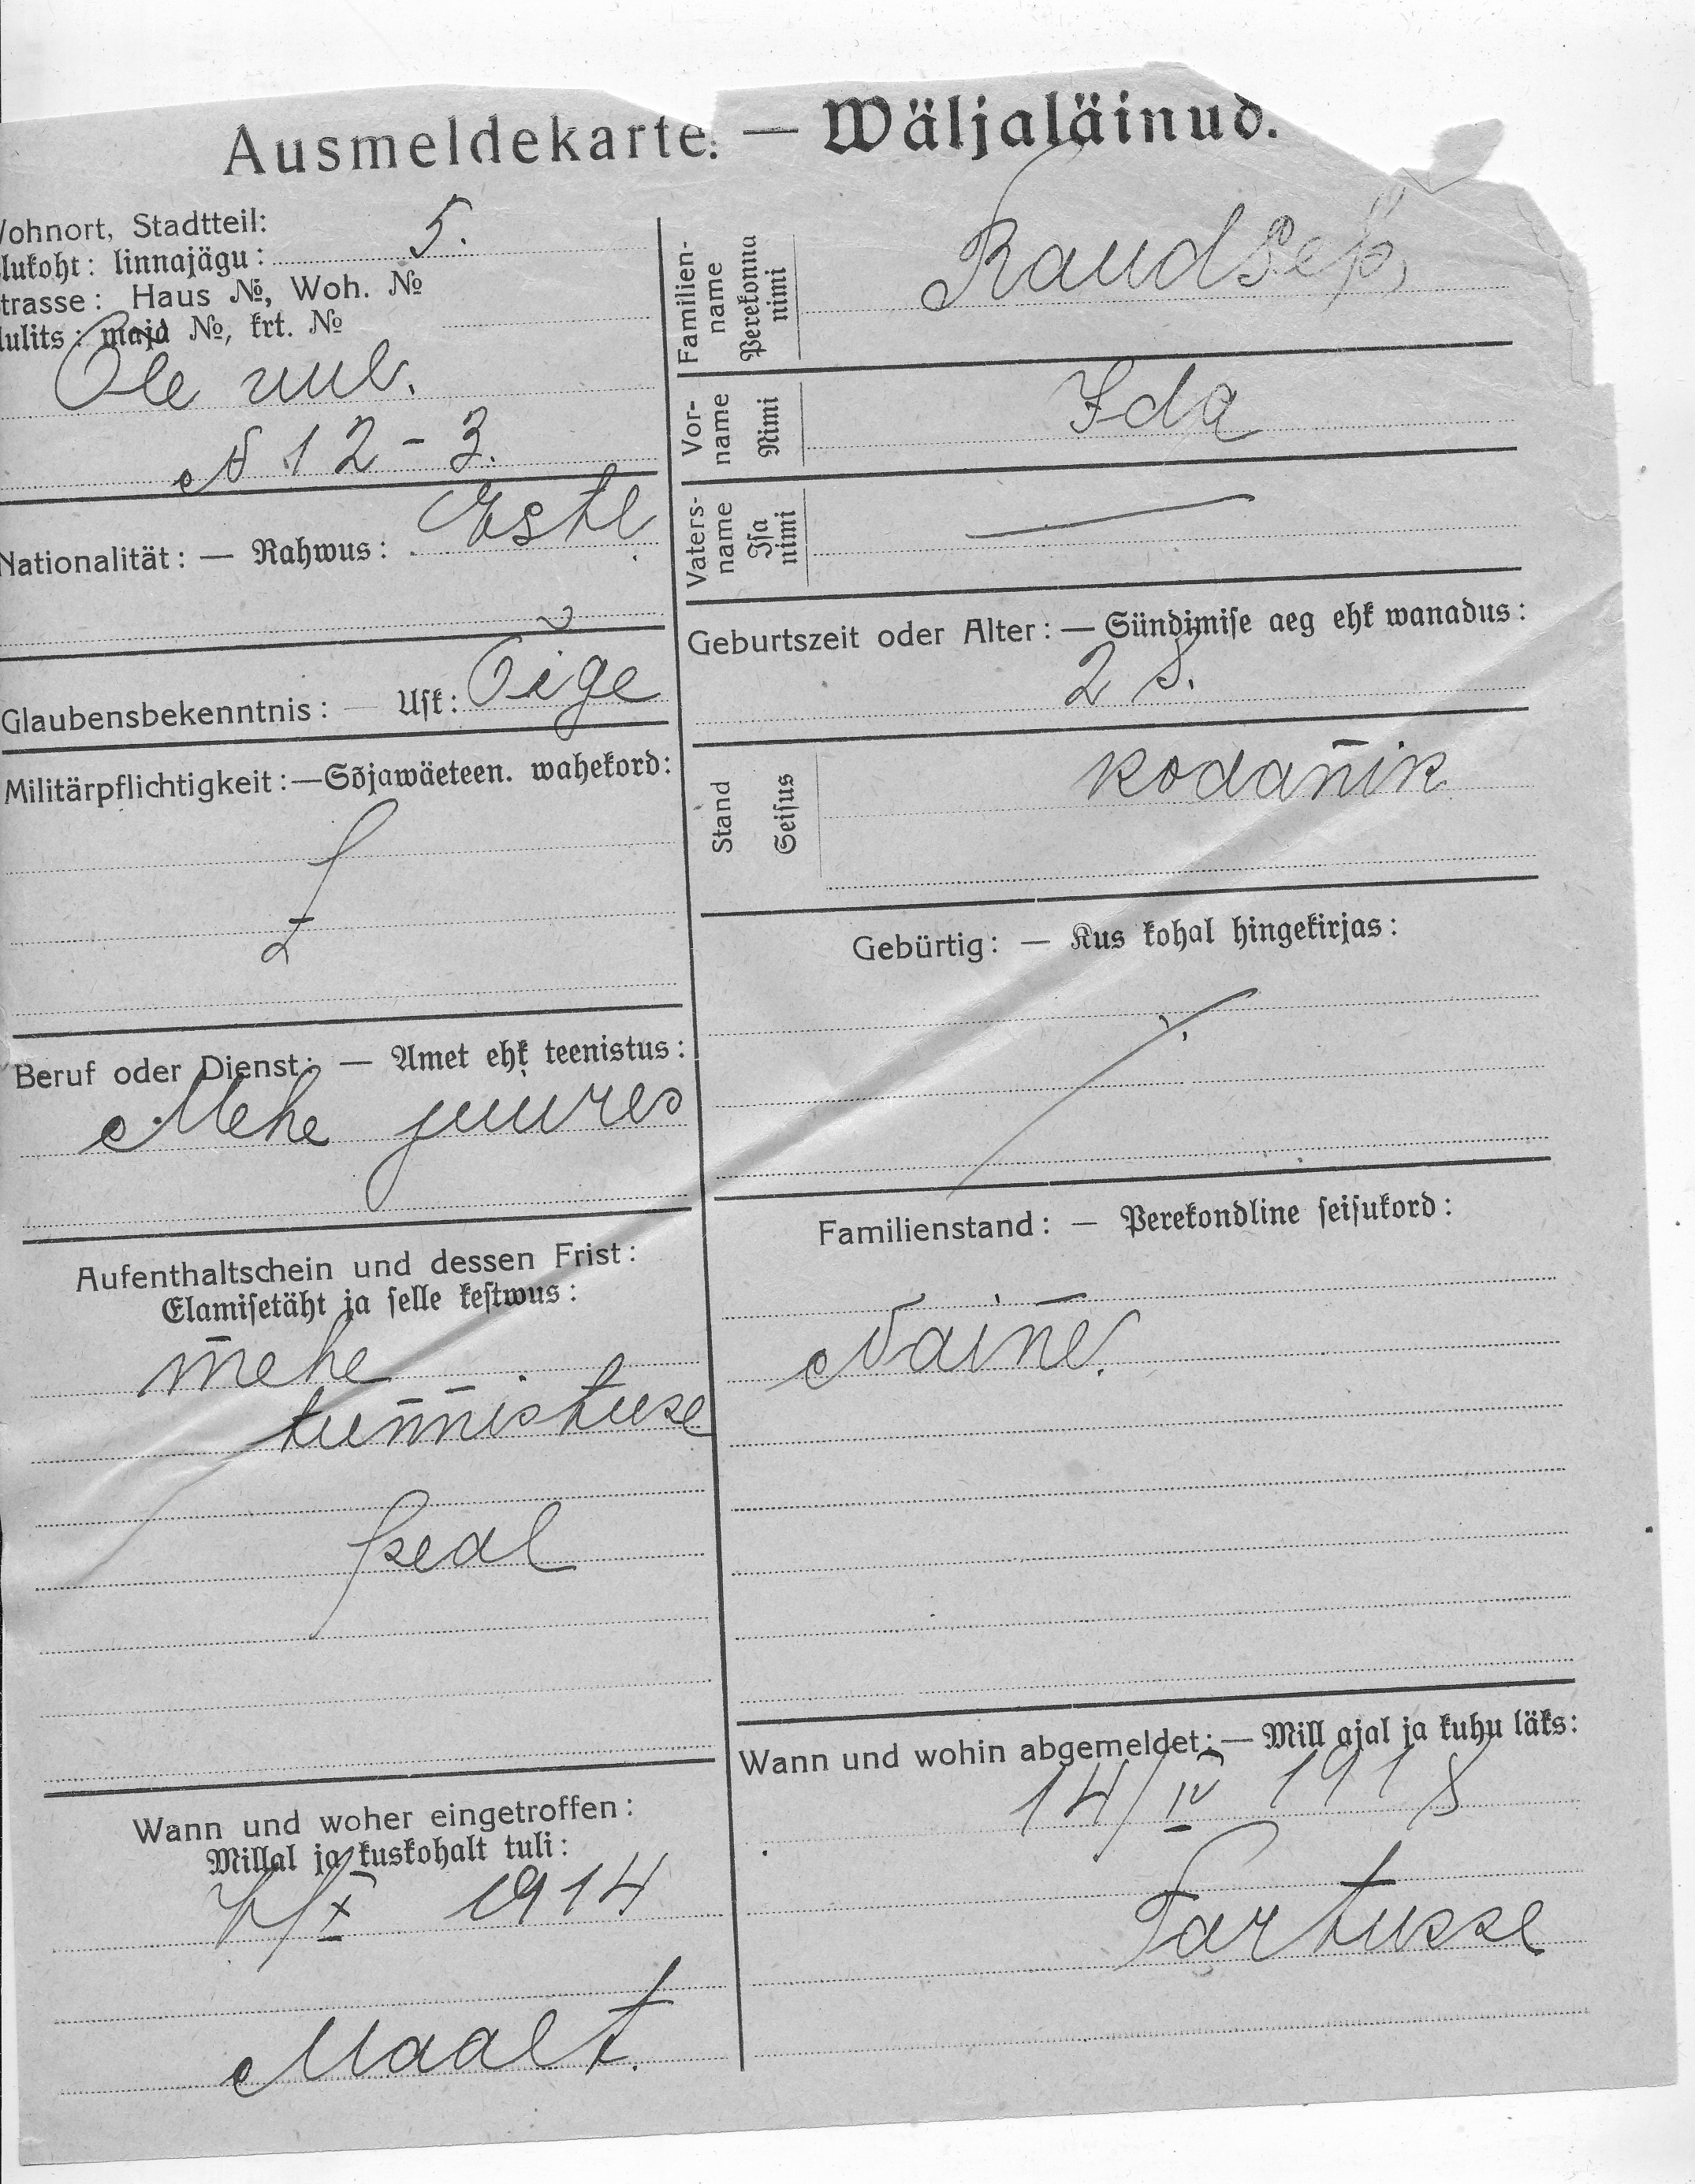 Ausmeldekarte. — Wäljaläinud.
Wohnort, Stadtteil:
Elukoht: linnajägu: 5.
Strasse: Haus №, Woh. №
Uulits: maja №, krt. №
Ole uul.
№ 12 - 3.
Nationalität: — Rahwus: Estl
Glaubensbekenntnis: — Usk: Õige
Militärpflichtigkeit: — Sõjawäeteen. wahekord:
Beruf oder Dienst: — Amet ehk teenistus:
Mehe juures
Aufenthaltschein und dessen Frist:
Elamisetäht ja selle kestwus:
mehe
tunnistuse
peal
Wann und woher eingetroffen:
Millal ja kuskohalt tuli:
X 1914
Maalt.
Familien-
name
Perekonna
nimi
Raudsep,
Vor-
name
Nimi
Ida
Vaters-
name
Isa
nimi
—
Geburtszeit oder Alter: — Sündimise aeg ehk wanadus:
28.
Stand
Seisus
kodanik
Gebürtig: — Kus kohal hingekirjas:
Familienstand: — Perekondline seisukord:
Naine.
Wann und wohin abgemeldet: — Mill ajal ja kuhu läks:
14/IV 1918
Tartusse